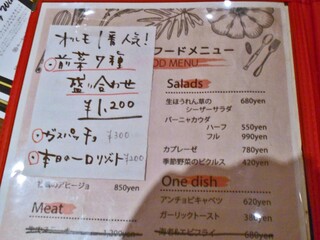 オルモ1番人気!
前菜7種
盛り合わせ
¥1,200
ガスパッチョ ¥300
本日の一口リゾット ¥200
フードメニュー
FOOD MENU
Salads
生ほうれん草の 680yen
シーザーサラダ
バーニャカウダ
ハーフ 550yen
フル 990yen
カプレーゼ 780yen
季節野菜のピクルス 420yen
850yen
One dish
アンチョビキャベツ 620yen
ガーリックトースト 380yen
海老&エビフライ 680yen
Meat
1,200yen